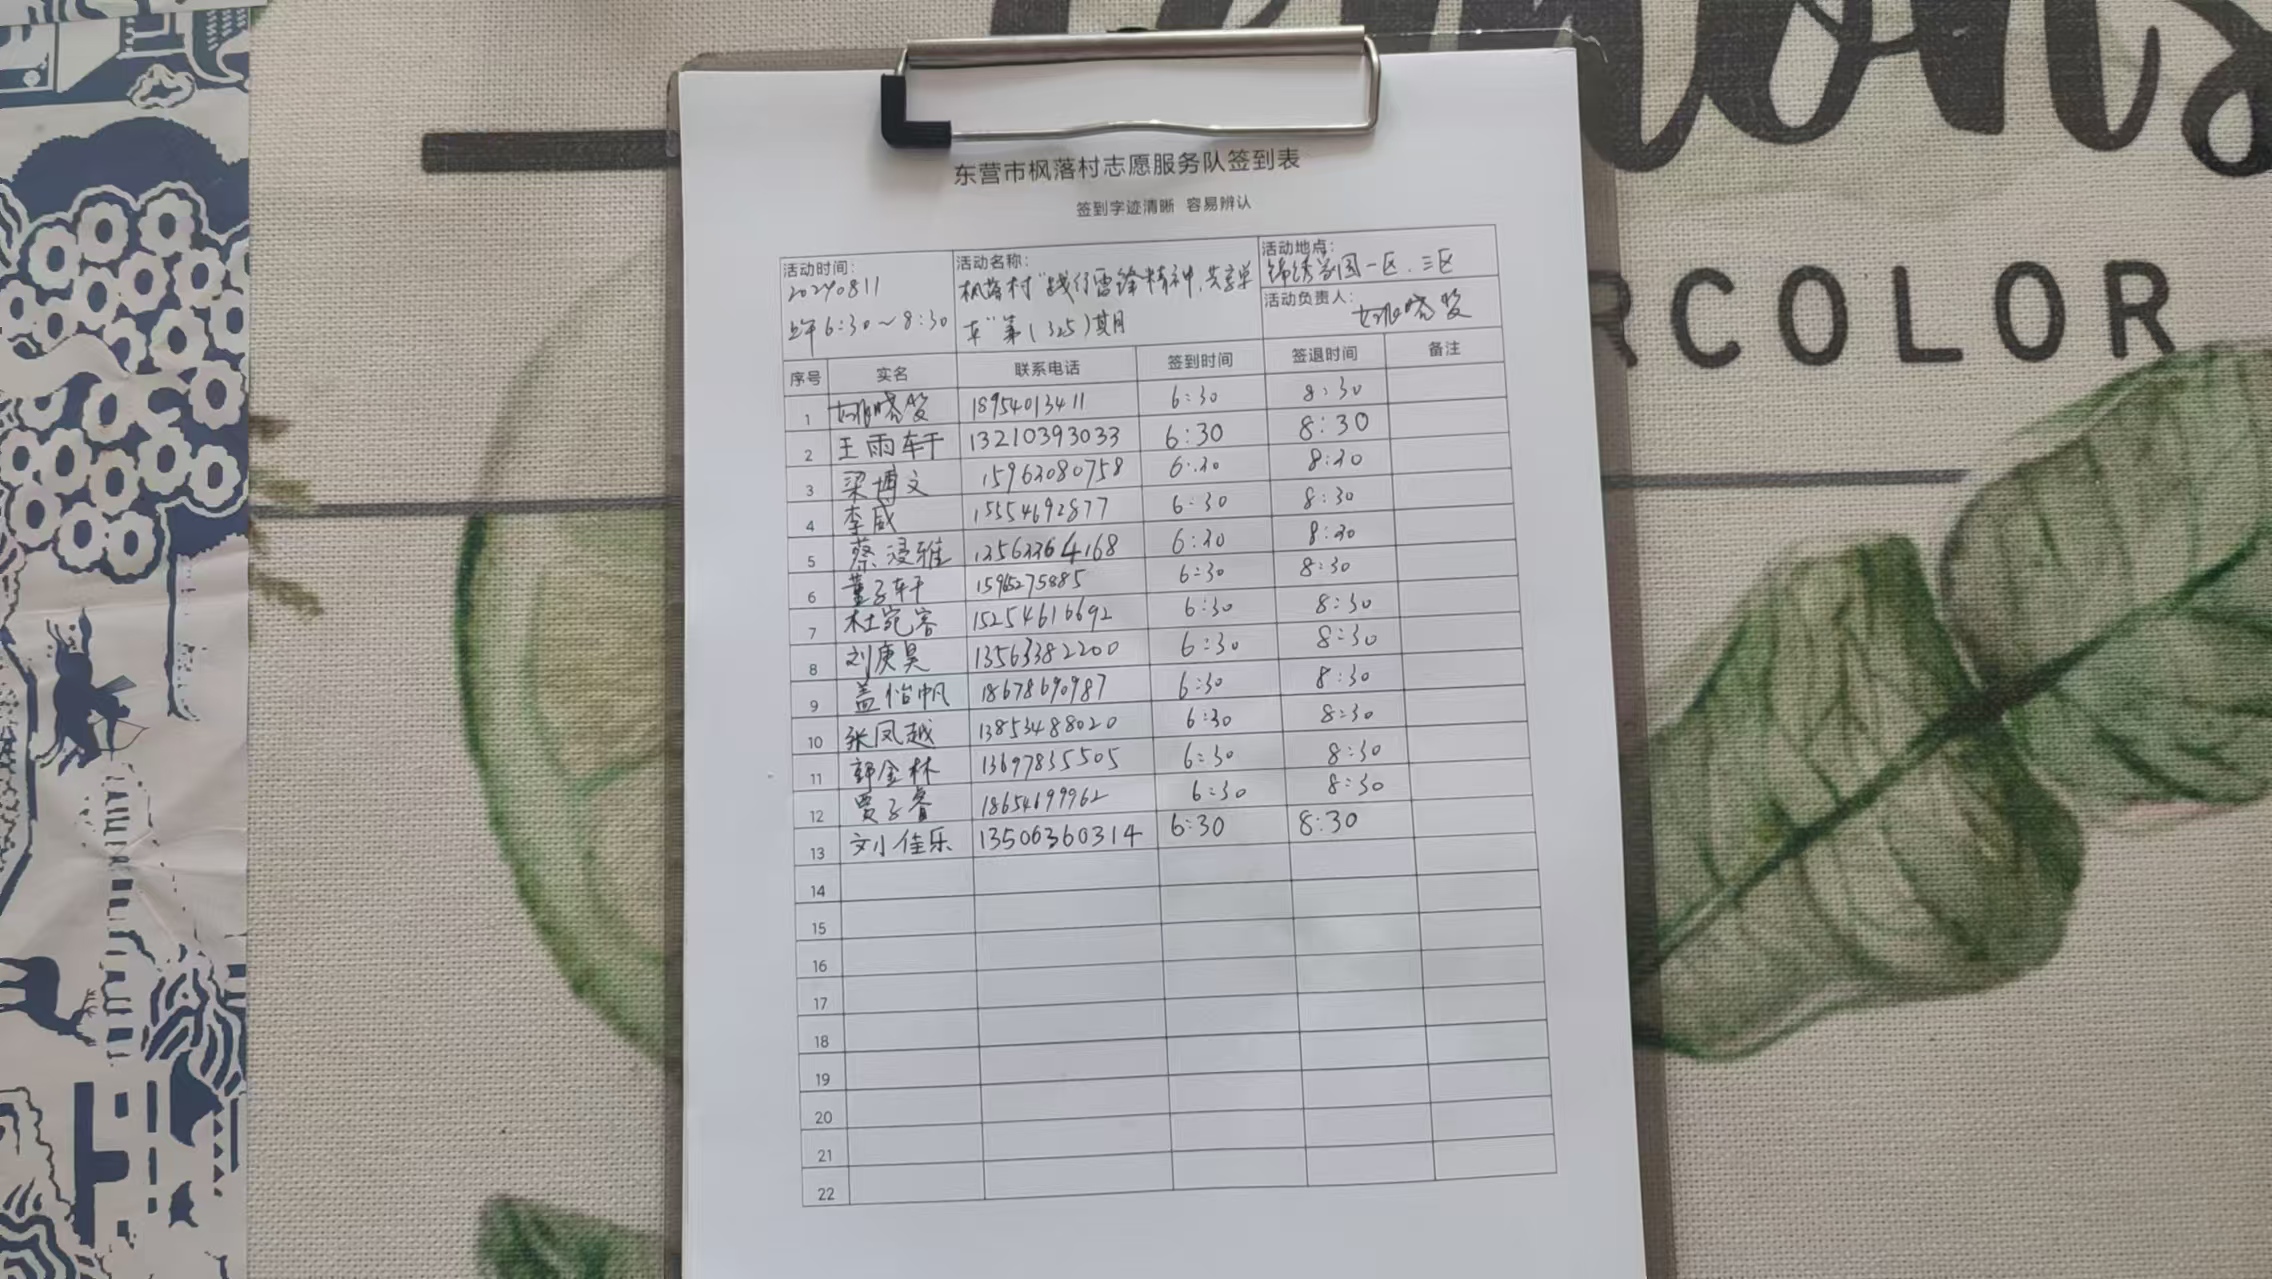 东营市枫落村志愿服务队签到表
签到字迹清晰 容易辨认
活动时间:
20240811
上午6:30~8:30
活动名称:
枫落村"践行雷锋精神,共享单
车"第(325)期
活动地点:
锦绣家园一区、三区
活动负责人:
姚晓俊
序号 实名 联系电话 签到时间 签退时间 备注
1 姚晓俊 18954013411 6:30 8:30
2 王雨轩 13210393033 6:30 8:30
3 梁博文 15963080758 6:30 8:30
4 李威 15554692877 6:30 8:30
5 蔡浸雅 13563364168 6:30 8:30
6 董子轩 6:30 8:30
7 杜宛客 15254616692 6:30 8:30
8 刘庚昊 13563382200 6:30 8:30
9 盖怡帆 18678690987 6:30 8:30
10 张凤越 13853488020 6:30 8:30
11 郭金林 13697835505 6:30 8:30
12 贾子睿 18654699962 6:30 8:30
13 刘佳乐 13506360314 6:30 8:30
14
15
16
17
18
19
20
21
22
COLOR